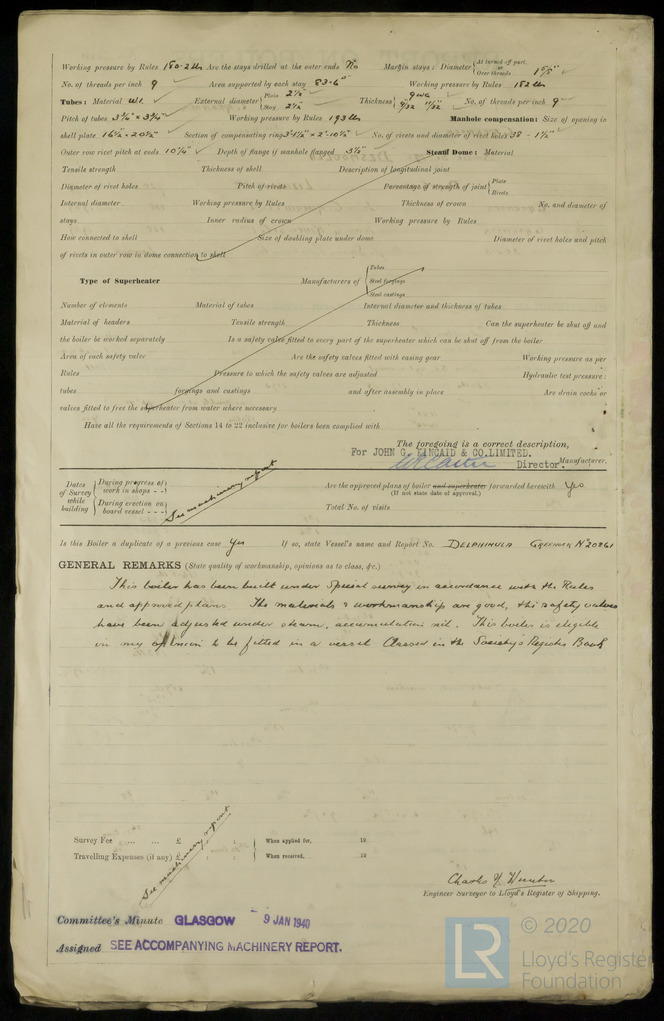 Working pressure by Rules 180.2 lb Are the stays drilled at the outer ends No Margin stays: Diameter { At turned off part, or Over threads 1 5/8"
No. of threads per inch 9 Area supported by each stay 83.6" Working pressure by Rules 182 lb
Tubes: Material W.I. External diameter { Plain 2 1/2" Stay 2 1/2" Thickness { 9 WG 9/32 11/32" No. of threads per inch 9
Pitch of tubes 3 3/4" x 3 3/4" Working pressure by Rules 193 lb Manhole compensation: Size of opening in
shell plate 16 1/2" x 20 1/2" Section of compensating ring 3'-1 1/2" x 2'-10 1/2" No. of rivets and diameter of rivet holes 38 - 1 1/2"
Outer row rivet pitch at ends 10 1/4" Depth of flange if manhole flanged 3 1/2" Steam Dome: Material
Tensile strength Thickness of shell Description of longitudinal joint
Diameter of rivet holes Pitch of rivets Percentage of strength of joint { Plate Rivets
Internal diameter Working pressure by Rules Thickness of crown No. and diameter of
stays Inner radius of crown Working pressure by Rules
How connected to shell Size of doubling plate under dome Diameter of rivet holes and pitch
of rivets in outer row in dome connection to shell
Type of Superheater Manufacturers of { Tubes Steel forgings Steel castings
Number of elements Material of tubes Internal diameter and thickness of tubes
Material of headers Tensile strength Thickness Can the superheater be shut off and
the boiler be worked separately Is a safety valve fitted to every part of the superheater which can be shut off from the boiler
Area of each safety valve Are the safety valves fitted with easing gear Working pressure as per
Rules Pressure to which the safety valves are adjusted Hydraulic test pressure:
tubes forgings and castings and after assembly in place Are drain cocks or
valves fitted to free the superheater from water where necessary
Have all the requirements of Sections 14 to 22 inclusive for boilers been complied with
The foregoing is a correct description,
For JOHN G. KINCAID & CO. LIMITED.
Director. Manufacturer.
Dates of Survey while building { During progress of work in shops - - During erection on board vessel - - - See machinery report
Are the approved plans of boiler and superheater forwarded herewith Yes
(If not state date of approval.)
Total No. of visits
Is this Boiler a duplicate of a previous case Yes If so, state Vessel's name and Report No. DELPHINULA GREENOCK No 20261
GENERAL REMARKS (State quality of workmanship, opinions as to class, &c.)
This boiler has been built under Special survey in accordance with the Rules
and approved plans The materials & workmanship are good, the safety valves
have been adjusted under steam, accumulation nil. This boiler is eligible
in my opinion to be fitted in a vessel Classed in the Society's Register Book
Survey Fee ... ... £ : : When applied for, 19
Travelling Expenses (if any) £ : : When received, 19
See machinery report
Engineer Surveyor to Lloyd's Register of Shipping.
Committee's Minute GLASGOW - 9 JAN 1940
Assigned SEE ACCOMPANYING MACHINERY REPORT.
LR © 2020
Lloyd's Register
Foundation